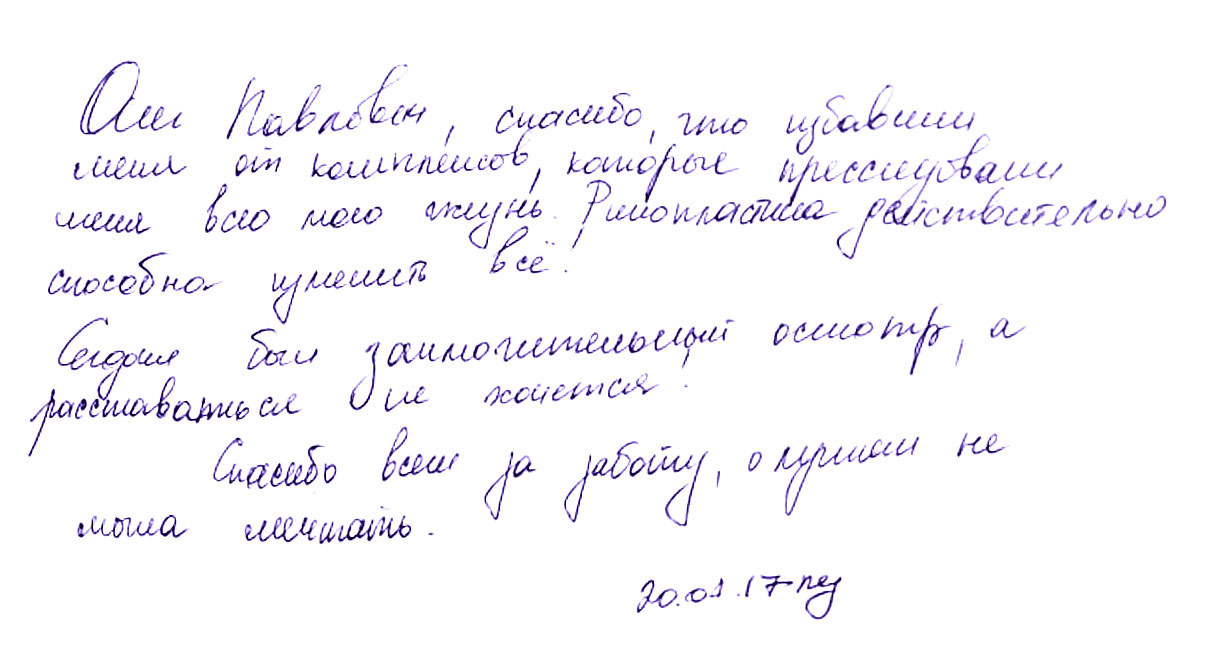 Павлович, спасибо, что избавили
меня от комплексов, которые прессидовали
меня всю мою жизнь. Ринопластика действительно
способна изменить всё!
Сегодня был заключительный осмотр, а
расставаться не хочется!
Спасибо всем за заботу, о лучшем не
могла мечтать.
20.01.17